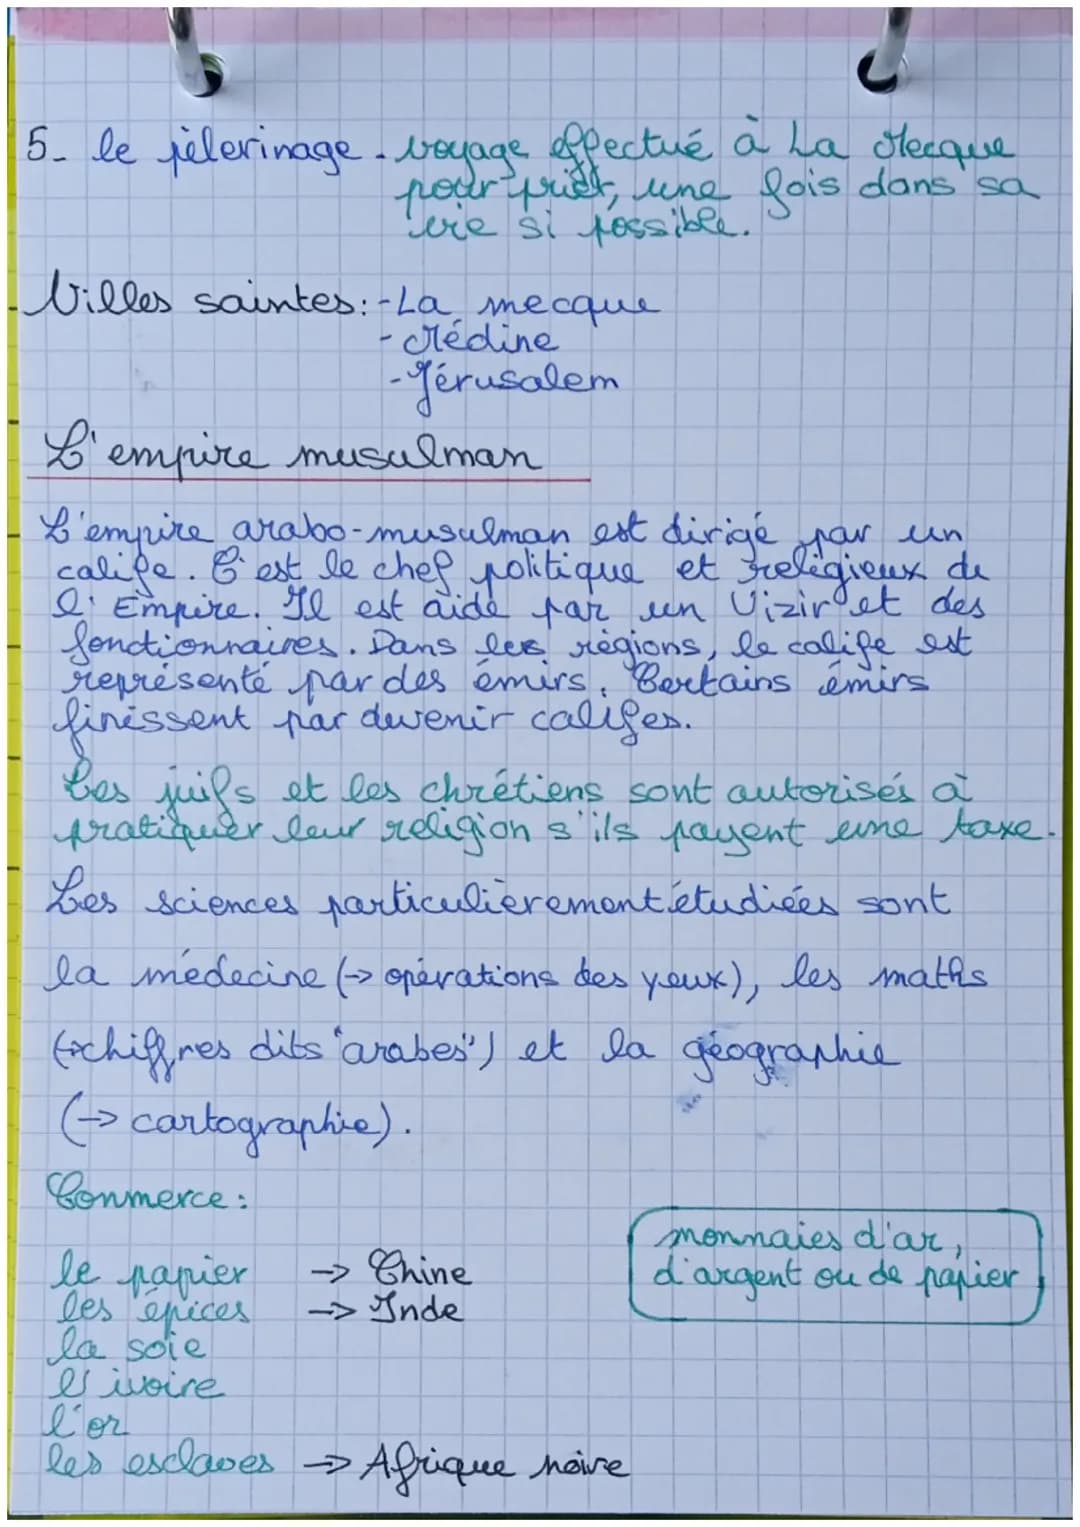 5- le pèlerinage - voyage effectué à La Mecque
pour prier, une fois dans sa
vie si possible.
Villes saintes: - La mecque
- Médine
- Jérusalem
L'empire musulman
L'empire arabo-musulman est dirigé par un
calife. C'est le chef politique et religieux de
l'Empire. Il est aidé par un Vizir et des
fonctionnaires. Dans les régions, le calife est
représenté par des émirs. Certains émirs
finissent par devenir califes.
Les juifs et les chrétiens sont autorisés à
pratiquer leur religion s'ils payent une taxe.
Les sciences particulièrement étudiées sont
la médecine (→ opérations des yeux), les maths
(→chiffres dits "arabes") et la géographie
(→ cartographie).
Commerce:
monnaies d'or,
d'argent ou de papier
le papier → Chine
les épices → Inde
la soie
l'ivoire
l'or
les esclaves → Afrique noire